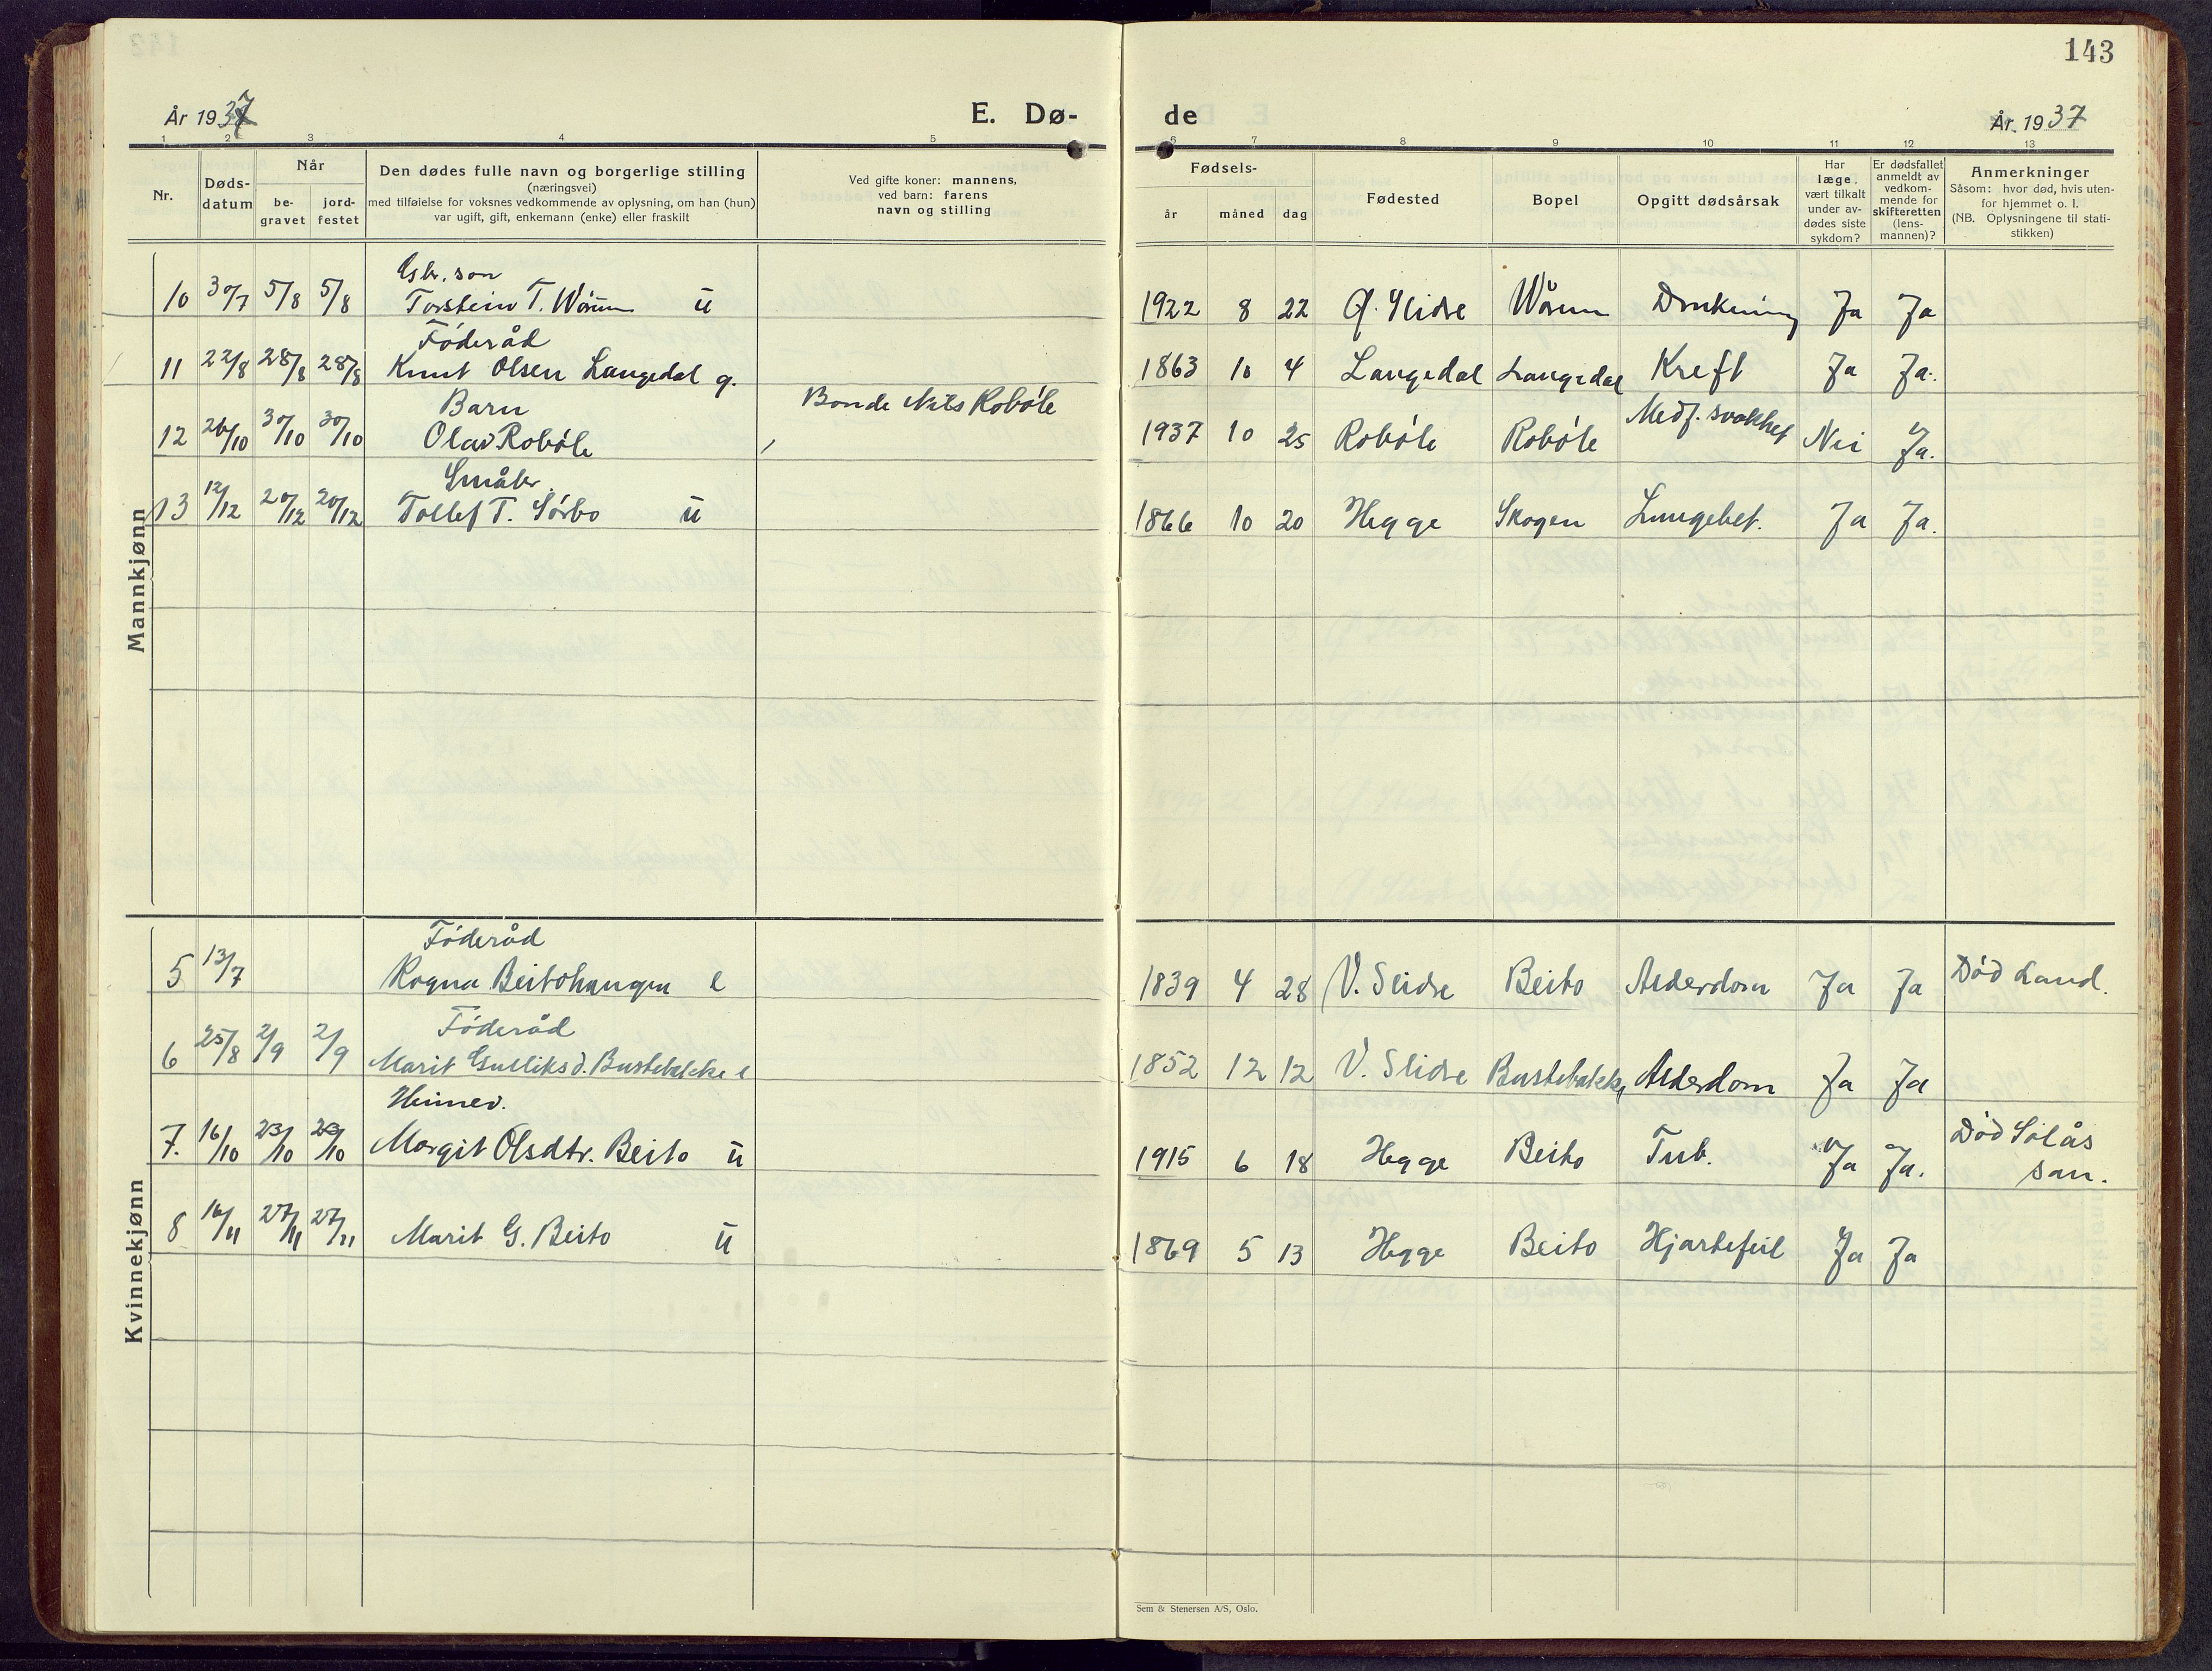 143
År 1937
E. Dø-
de
År 1937
1 2 3 4 5 6 7 8 9 10 11 12 13
Nr.
Døds-
datum
Når
be-
gravet
jord-
festet
Den dødes fulle navn og borgerlige stilling
(næringsvei)
med tilføielse for voksnes vedkommende av oplysning, om han (hun)
var ugift, gift, enkemann (enke) eller fraskilt
Ved gifte koner: mannens,
ved barn: farens
navn og stilling
Fødsels-
år måned dag
Fødested
Bopel
Opgitt dødsårsak
Har
læge
vært tilkalt
under av-
dødes siste
sykdom?
Er dødsfallet
anmeldt av
vedkom-
mende for
skifteretten
(lens-
mannen)?
Anmerkninger
Såsom: hvor død, hvis uten-
for hjemmet o. l.
(NB. Oplysningene til stati-
stikken)
Mannkjønn
Gbr. son
10 30/7 5/8 5/8 Torstein T. Wårum ü 1922 8 22 Ø. Slidre Wårum Drukning Ja Ja
Föderåd
11 22/8 28/8 28/8 Knut Olsen Langedal g. 1863 10 4 Langedal Langedal Kreft Ja Ja.
Barn Bonde Nils Robøle
12 26/10 30/10 30/10 Olav Robøle 1937 10 25 Robøle Robøle Medf. svakhet Nei Ja.
Småbr.
13 12/12 20/12 20/12 Tollef T. Sørbo ü 1866 10 20 Hegge Skogen Lungebet. Ja Ja.
Kvinnekjønn
Föderåd
5 13/7 Rogna Beitohaugen e 1839 4 28 V. Slidre Beito Alderdom Ja Ja Död Land.
Föderåd
6 25/8 2/9 2/9 Marit Gulliksd. Bustebakke e 1852 12 12 V. Slidre Bustebakke Alderdom Ja Ja
Heimev.
7. 16/10 23/10 23/10 Margit Olsdtr. Beito ü 1915 6 18 Hegge Beito Tub. Ja Ja. Död Solås
san.
8 16/11 27/11 27/11 Marit G. Beito ü 1869 5 13 Hegge Beito Hjartefeil Ja Ja
Sem & Stenersen A/S, Oslo.